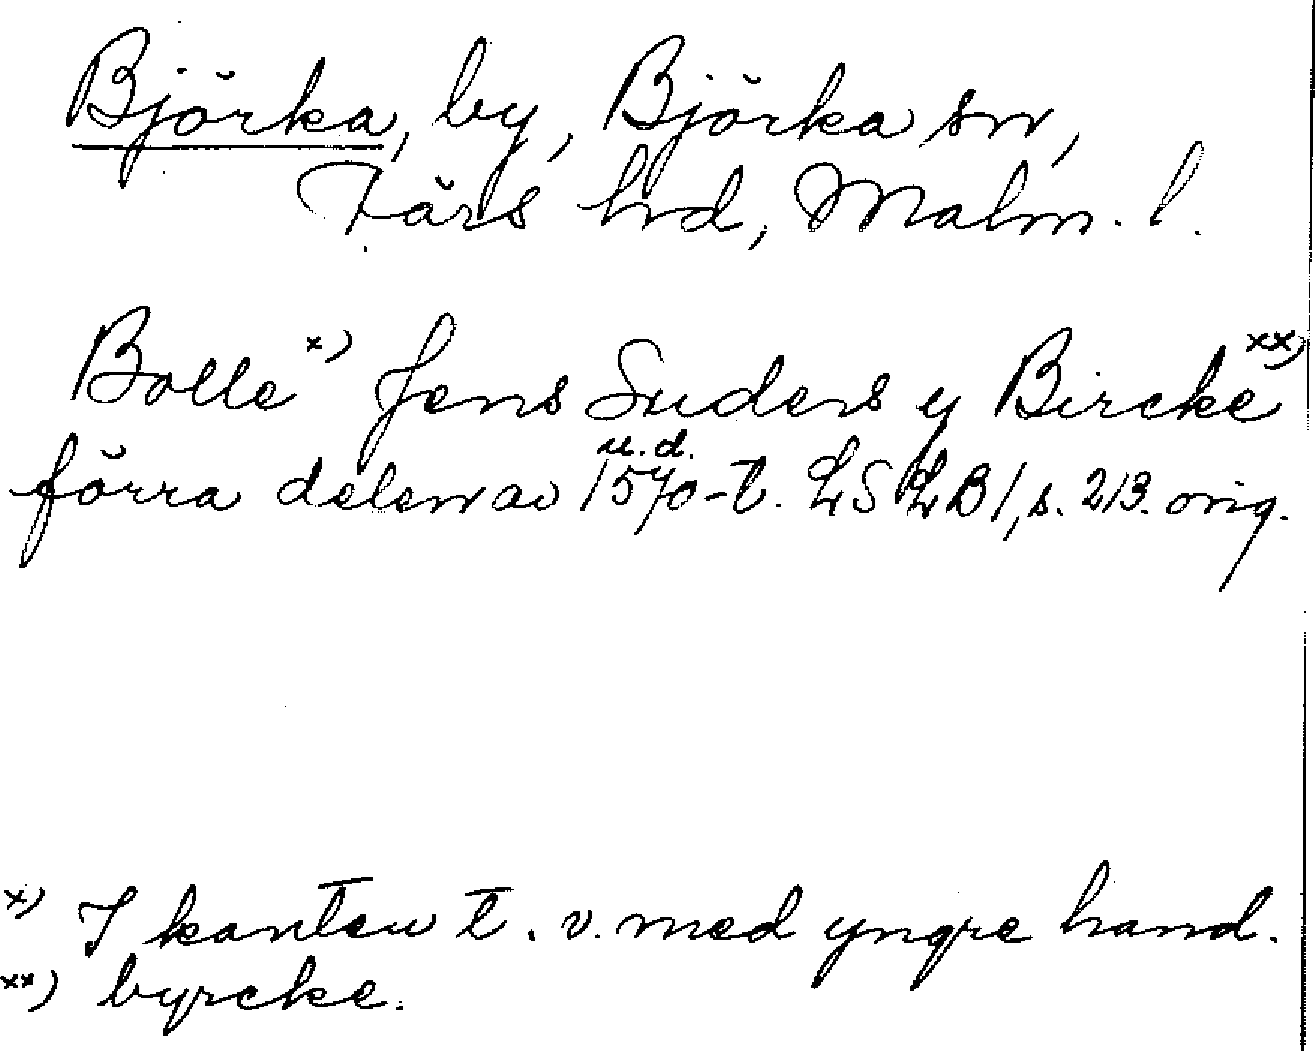 Björka, by, Björka sn,
Färs hrd, Malm. l.
Bolle x) Jens Suders y Bircke xx)
u.d.
förra delen av 1570-t. LSLB 1, s. 213. orig.
x) I kanten t. v. med yngre hand.
xx) byrcke.